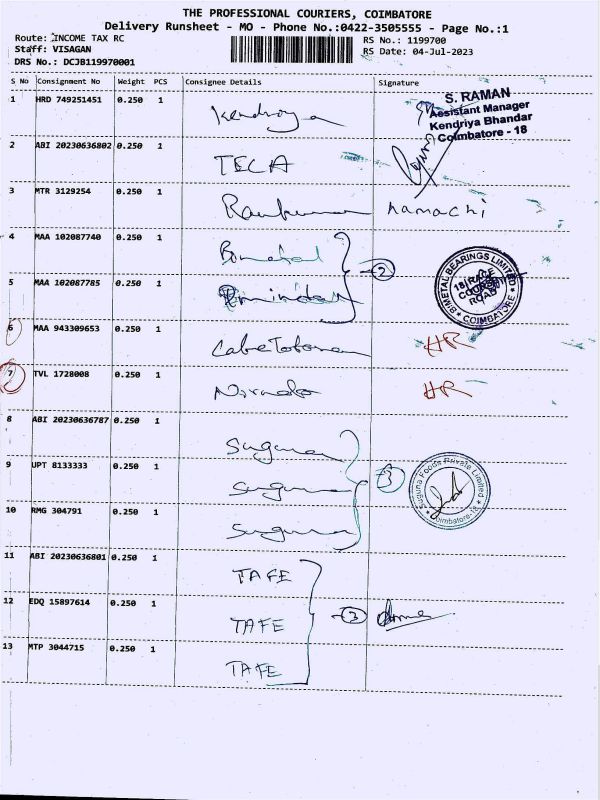 THE PROFESSIONAL COURIERS, COIMBATORE
Delivery Runsheet - MO - Phone No.:0422-3505555 - Page No.:1
Route: INCOME TAX RC
RS No.: 1199700
Staff: VISAGAN
RS Date: 04-Jul-2023
DRS No.: DCJB119970001
S No Consignment No Weight PCS Consignee Details Signature
1 HRD 749251451 0.250 1 Kendriya
S. RAMAN
Assistant Manager
Kendriya Bhandar
Coimbatore - 18
2 ABI 20230636802 0.250 1 TECA
3 MTR 3129254 0.250 1 hamachi
4 MAA 102087740 0.250 1 Bimetal
2
5 MAA 102087785 0.250 1
BIMETAL BEARINGS LIMITED
18 RACE
COURSE
ROAD
COIMBATORE
6 MAA 943309653 0.250 1 HR
7 TVL 1728008 0.250 1 HR
8 ABI 20230636787 0.250 1 Suguna
9 UPT 8133333 0.250 1 Suguna 3
Suguna Foods Private Limited
Coimbatore-18
10 RMG 304791 0.250 1 Suguna
11 ABI 20230636801 0.250 1 TAFE
12 EDQ 15897614 0.250 1 TAFE 3
13 MTP 3044715 0.250 1 TAFE